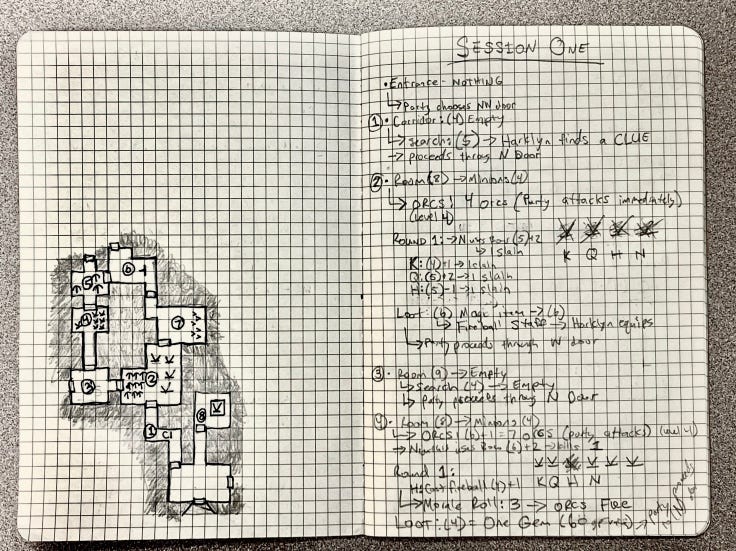 SESSION ONE
• Entrance - NOTHING
↳ Party chooses NW door
① • Corridor: (4) Empty
↳ search: (5) → Harklyn finds a CLUE
→ proceeds throug N Door
② • Room (8) → Minions (4)
↳ ORCS! 4 orcs (Party attacks immediately)
(level 4)
ROUND 1: → N uses Bow (5)+2
↳ 1 slain
K Q H N
K: (4)+1 → 1 slain
Q: (5)+2 → 1 slain
H: (5)-1 → 1 slain
Loot: (6) Magic item → (6)
↳ Fireball Staff → Harklyn equips
↳ Party proceeds through W door
③ • Room (9) → Empty
↳ Search (4) → Empty
↳ Party proceeds through N Door
④ • Room (8) → Minions (4)
↳ ORCS! (6)+1 = 7 orcs (party attacks) (level 4)
→ uses Bow (6)+2 → kills 1
Round 1:
K Q H N
H: Cast fireball (4)+1
↳ Morale Roll: 3 → ORCS Flee
LOOT: (4) = One Gem
party
6
5
4
7
3
2
8
K
1
C1